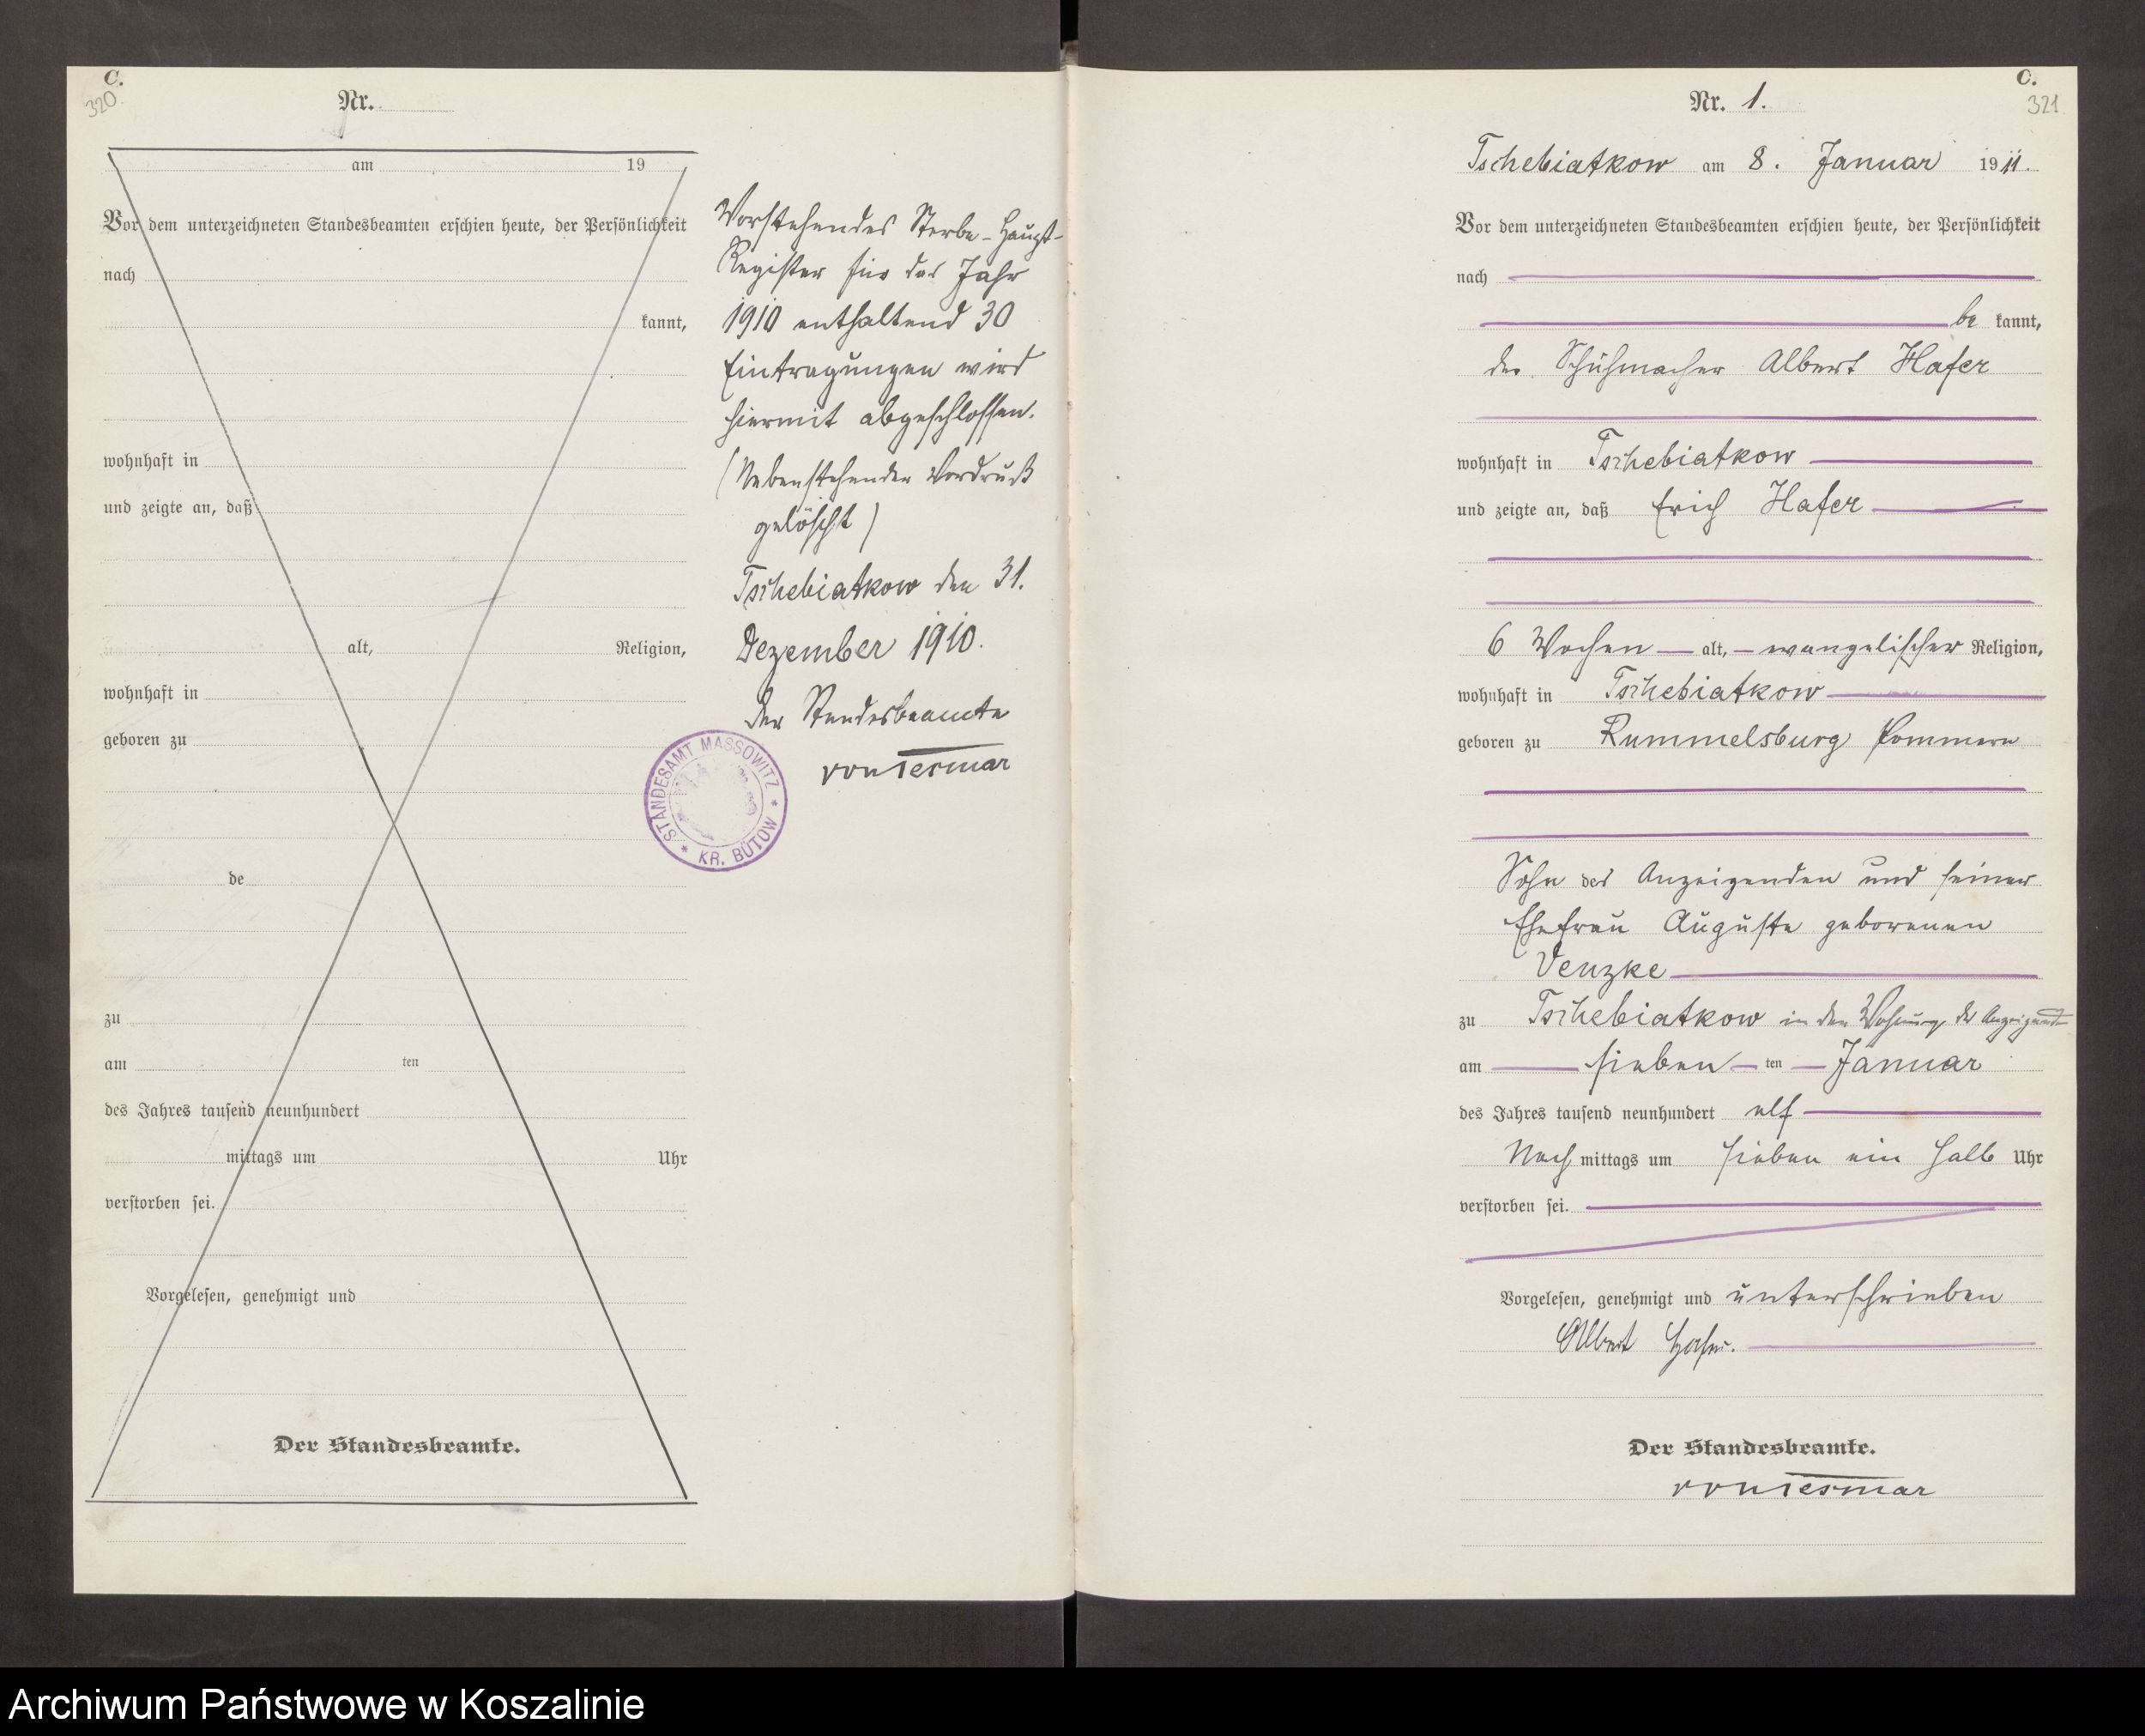 C.
320.
Nr.
am 19
Vor dem unterzeichneten Standesbeamten erschien heute, der Persönlichkeit
nach
kannt,
wohnhaft in
und zeigte an, daß
alt, Religion,
wohnhaft in
geboren zu
de
zu
am ten
des Jahres tausend neunhundert
mittags um Uhr
verstorben sei.
Vorgelesen, genehmigt und
Der Standesbeamte.
Vorstehendes Sterbe-Haupt-
Register für das Jahr
1910 enthaltend 30
Eintragungen wird
hiermit abgeschlossen.
(Nebenstehender Vordruck
gelöscht)
Tschebiatkow den 31.
Dezember 1910.
Der Standesbeamte
von Tesmar
STANDESAMT MASSOWITZ * KR. BÜTOW *
C.
321
Nr. 1.
Tschebiatkow am 8. Januar 1911.
Vor dem unterzeichneten Standesbeamten erschien heute, der Persönlichkeit
nach
be kannt,
der Schuhmacher Albert Hafer
wohnhaft in Tschebiatkow
und zeigte an, daß Erich Hafer
6 Wochen alt, evangelischer Religion,
wohnhaft in Tschebiatkow
geboren zu Rummelsburg Pommern
Sohn des Anzeigenden und seiner
Ehefrau Auguste geborenen
Venzke
zu Tschebiatkow in der Wohnung des Anzeigenden
am sieben ten Januar
des Jahres tausend neunhundert elf
Nach mittags um sieben ein halb Uhr
verstorben sei.
Vorgelesen, genehmigt und unterschrieben
Albert Hafer.
Der Standesbeamte.
von Tesmar
Archiwum Państwowe w Koszalinie